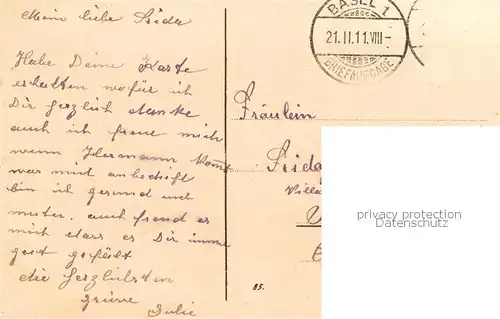 Mein liebe Frida
Habe Deine Karte
erhalten wofür ich
Dir herzlich danke
auch ich freue mich
wenn Hermann kommt
was mich anbedrift
bin ich gesund und
munter. auch freud es
mich dass es Dir imme
gut gefält
die herzlichsten
grüsse
Julie
BASEL 1
21.II.11.VIII-
BRIEFAUFGABE
Fräulein
Frida
Villa
85.
privacy protection
Datenschutz